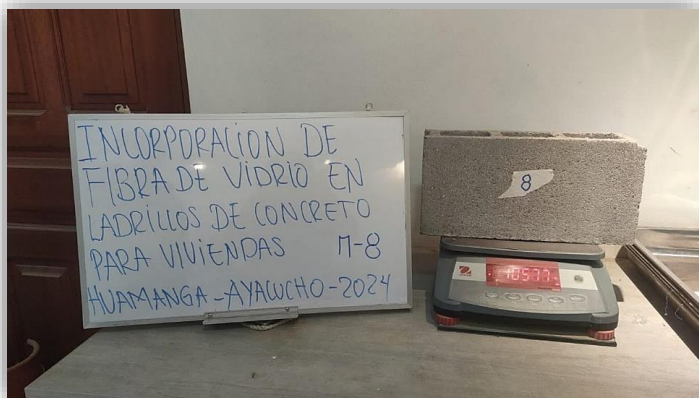 INCORPORACION DE
FIBRA DE VIDRIO EN
LADRILLOS DE CONCRETO
PARA VIVIENDAS M-8
HUAMANGA-AYACUCHO-2024
8